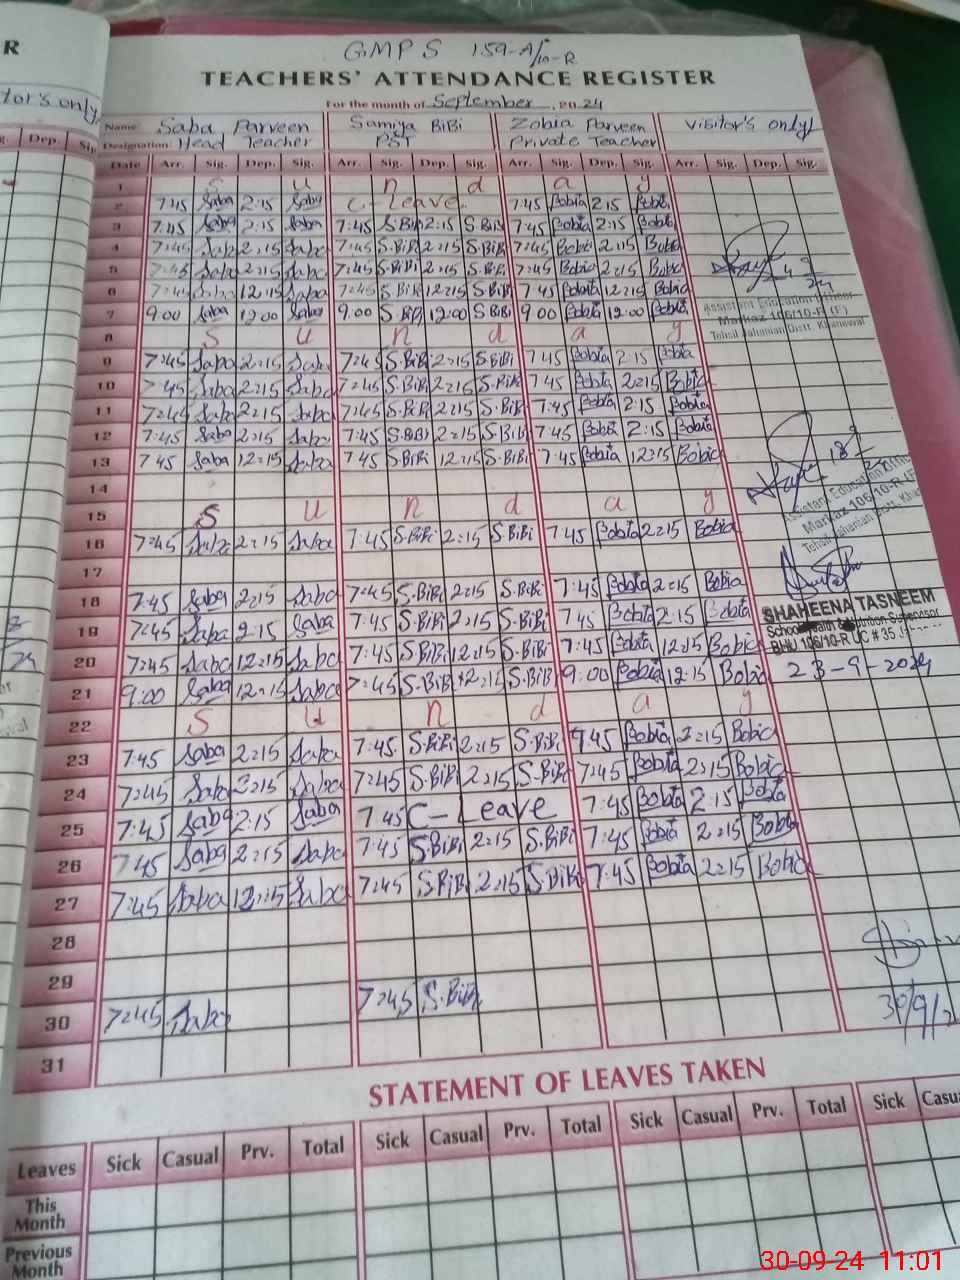 R
GMPS 159-A/10-R
TEACHERS' ATTENDANCE REGISTER
tor's only
For the month of September, 2024
Name: Saba Parveen Samiya BiBi Zobia Parveen Visitor's only
Designation: Head Teacher PST Private Teacher
Dep. Sig Date Arr. Sig. Dep. Sig. Arr. Sig. Dep. Sig. Arr. Sig. Dep. Sig. Arr. Sig. Dep. Sig.
1 S u n d a y
2 7:45 Saba 2:15 Saba C-Leave 7:45 Bobia 2:15 Bobia
3 7:45 Saba 2:15 Saba 7:45 S.BiBi 2:15 S.BiBi 7:45 Bobia 2:15 Bobia
4 7:45 Saba 2:15 Saba 7:45 S.BiBi 2:15 S.BiBi 7:45 Bobia 2:15 Bobia
5 7:45 Saba 2:15 Saba 7:45 S.BiBi 2:15 S.BiBi 7:45 Bobia 2:15 Bobia
6 7:45 Saba 12:15 Saba 7:45 S.BiBi 12:15 S.BiBi 7:45 Bobia 12:15 Bobia
7 9:00 Saba 12:00 Saba 9:00 S.BiBi 12:00 S.BiBi 9:00 Bobia 12:00 Bobia
Assistant Education Officer
Markaz 106/10-R (F)
Tehsil Jahanian Distt. Khanewal
8 S u n d a y
9 7:45 Saba 2:15 Saba 7:45 S.BiBi 2:15 S.BiBi 7:45 Bobia 2:15 Bobia
10 7:45 Saba 2:15 Saba 7:45 S.BiBi 2:15 S.BiBi 7:45 Bobia 2:15 Bobia
11 7:45 Saba 2:15 Saba 7:45 S.BiBi 2:15 S.BiBi 7:45 Bobia 2:15 Bobia
12 7:45 Saba 2:15 Saba 7:45 S.BiBi 2:15 S.BiBi 7:45 Bobia 2:15 Bobia
13 7:45 Saba 12:15 Saba 7:45 S.BiBi 12:15 S.BiBi 7:45 Bobia 12:15 Bobia
14
Assistant Education Offi
Markaz 106/10-R (F
Tehsil Jahanian Distt. Kha
15 S u n d a y
16 7:45 Saba 2:15 Saba 7:45 S.BiBi 2:15 S.BiBi 7:45 Bobia 2:15 Bobia
17
18 7:45 Saba 2:15 Saba 7:45 S.BiBi 2:15 S.BiBi 7:45 Bobia 2:15 Bobia
19 7:45 Saba 2:15 Saba 7:45 S.BiBi 2:15 S.BiBi 7:45 Bobia 2:15 Bobia
SHAHEENA TASNEEM
BHU 106/10-R UC # 35
20 7:45 Saba 12:15 Saba 7:45 S.BiBi 12:15 S.BiBi 7:45 Bobia 12:15 Bobia
21 9:00 Saba 12:15 Saba 7:45 S.BiBi 12:15 S.BiBi 9:00 Bobia 12:15 Bobia
23-9-2024
22 S u n d a y
23 7:45 Saba 2:15 Saba 7:45 S.BiBi 2:15 S.BiBi 7:45 Bobia 2:15 Bobia
24 7:45 Saba 2:15 Saba 7:45 S.BiBi 2:15 S.BiBi 7:45 Bobia 2:15 Bobia
25 7:45 Saba 2:15 Saba 7 45 C-Leave 7:45 Bobia 2:15 Bobia
26 7:45 Saba 2:15 Saba 7:45 S.BiBi 2:15 S.BiBi 7:45 Bobia 2:15 Bobia
27 7:45 Saba 12:15 Saba 7:45 S.BiBi 2:15 S.BiBi 7:45 Bobia 2:15 Bobia
28
29
30 7:45 Saba 7:45 S.BiBi 30/9/2
31
STATEMENT OF LEAVES TAKEN
Leaves Sick Casual Prv. Total Sick Casual Prv. Total Sick Casual Prv. Total Sick Casu
This Month
Previous Month
30-09-24 11:01